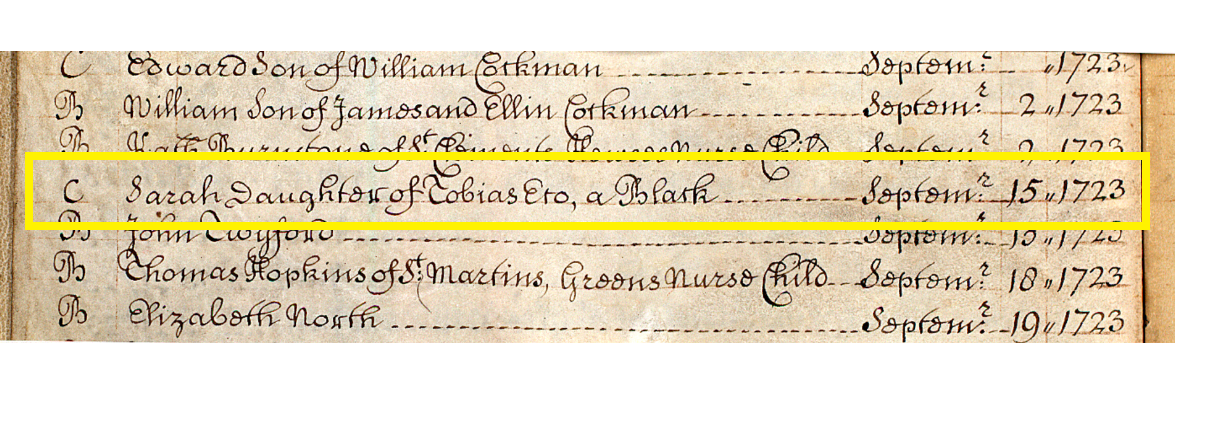 C Edward Son of William Cockman Septem:r 1723
B William Son of James and Ellin Cockman Septem:r 2 1723
B Kath: of St Clements Nurse Child 2 1723
C Sarah Daughter of Tobias Eto, a Black Septem:r 15 1723
B John Twyford Septem:r 15 1723
B Thomas Hopkins of St: Martins, Greens Nurse Child Septem:r 18 1723
B Elizabeth North Septem:r 19 1723